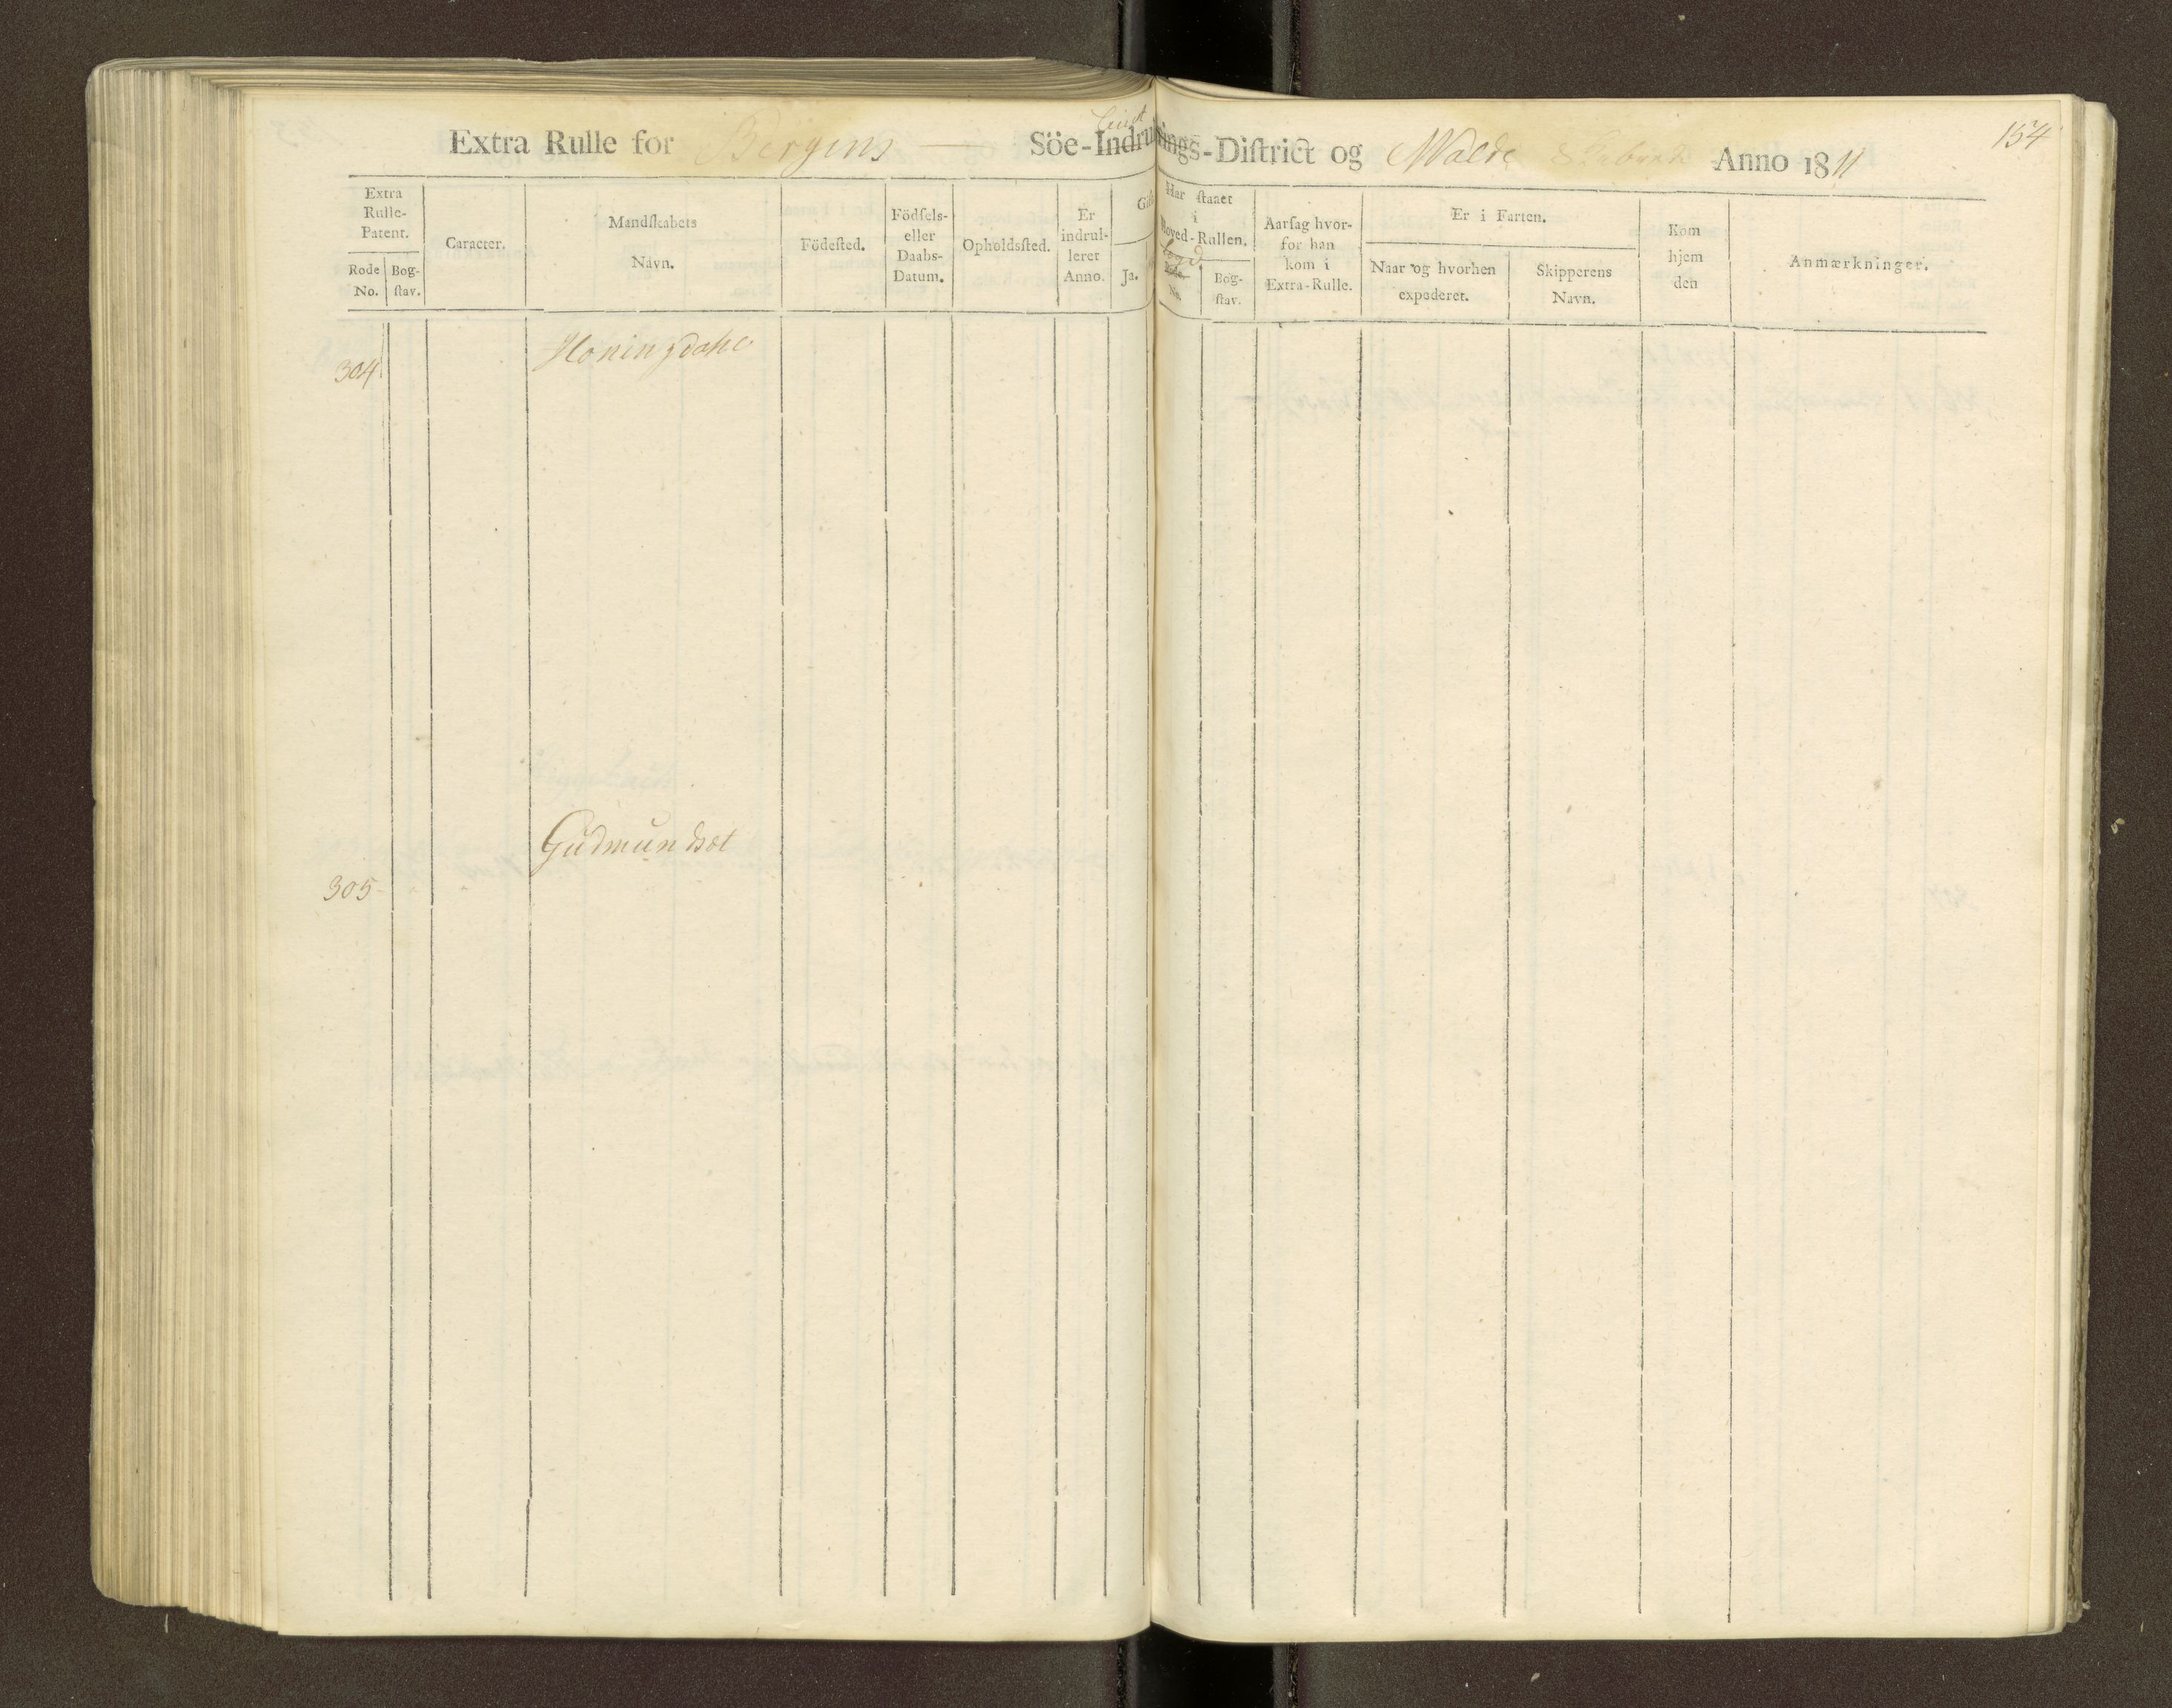 154
Extra Rulle for Bergens Söe-Indrullerings-Diſtrict og Molde Anno 1811
Extra Rulle-Patent.
Rode No.
Bog-ſtav.
Caracter.
Mandſkabets Navn.
Födeſted.
Födſels- eller Daabs-Datum.
Opholdsſted.
Er indrul-leret Anno.
Gift
Ja.
Har ſtaaet i Hoved-Rullen.
Lægd
No.
Bog-ſtav.
Aarſag hvor-for han kom i Extra-Rulle.
Er i Farten.
Naar og hvorhen expederet.
Skipperens Navn.
Kom hjem den
Anmærkninger.
304 Honingdahl
Gudmundset
305